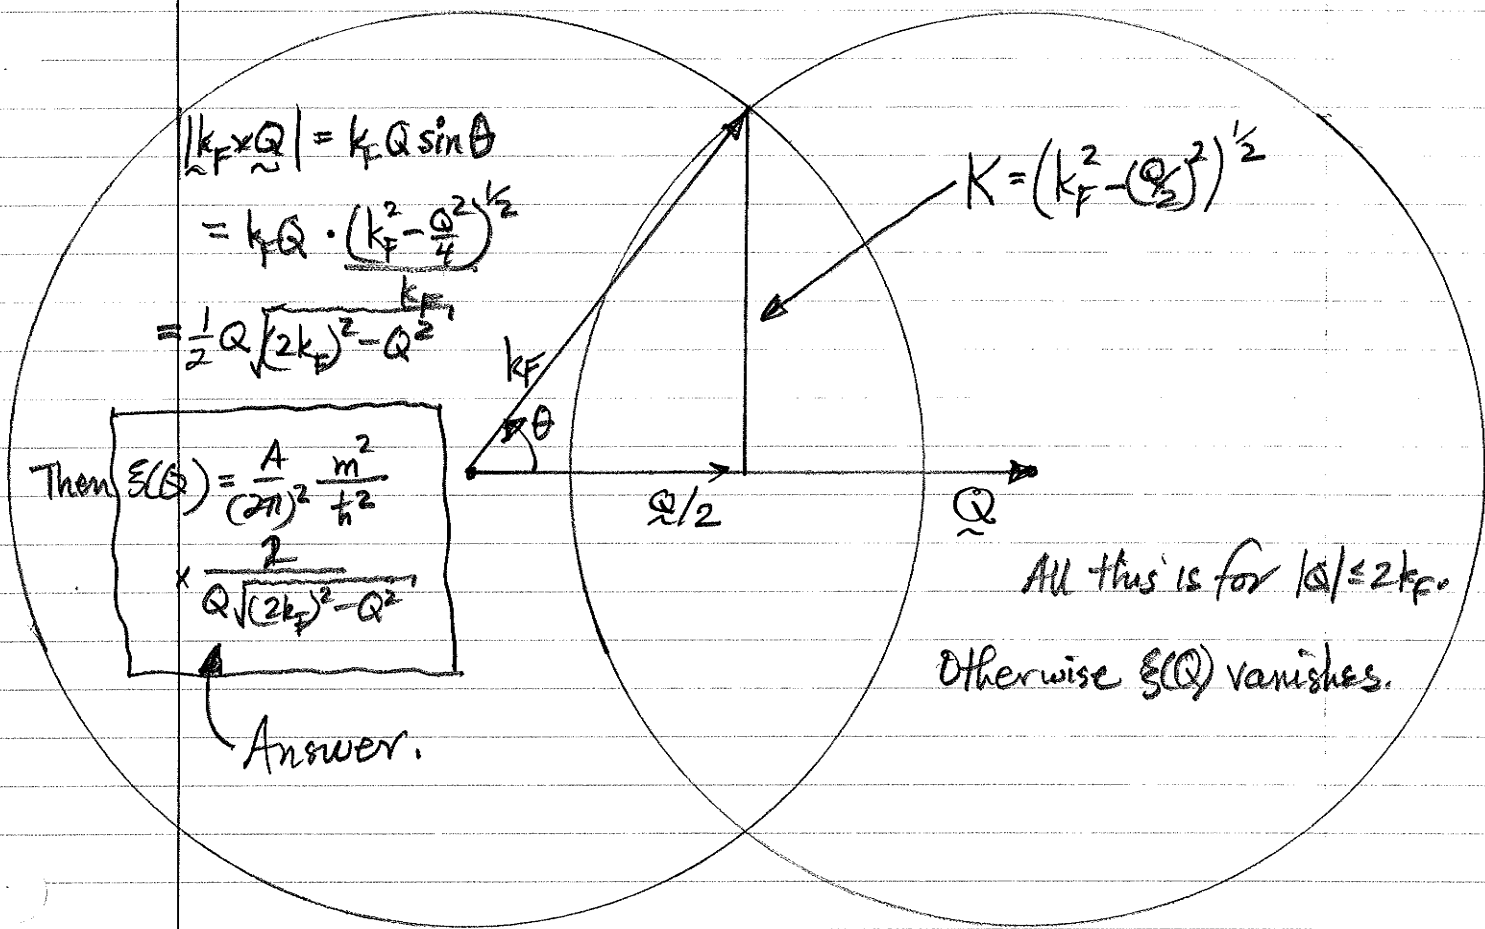 |k_F × Q| = k_F Q sin θ
= k_F Q · (k_F² - Q²/4)^½ / k_F
= ½ Q √((2k_F)² - Q²)
Then ξ(Q) = A/(2π)² m²/ħ²
× 2/(Q√((2k_F)² - Q²))
Answer.
k_F
θ
Q/2
Q
K = (k_F² - (Q/2)²)^½
All this is for |Q| ≤ 2k_F.
Otherwise ξ(Q) vanishes.